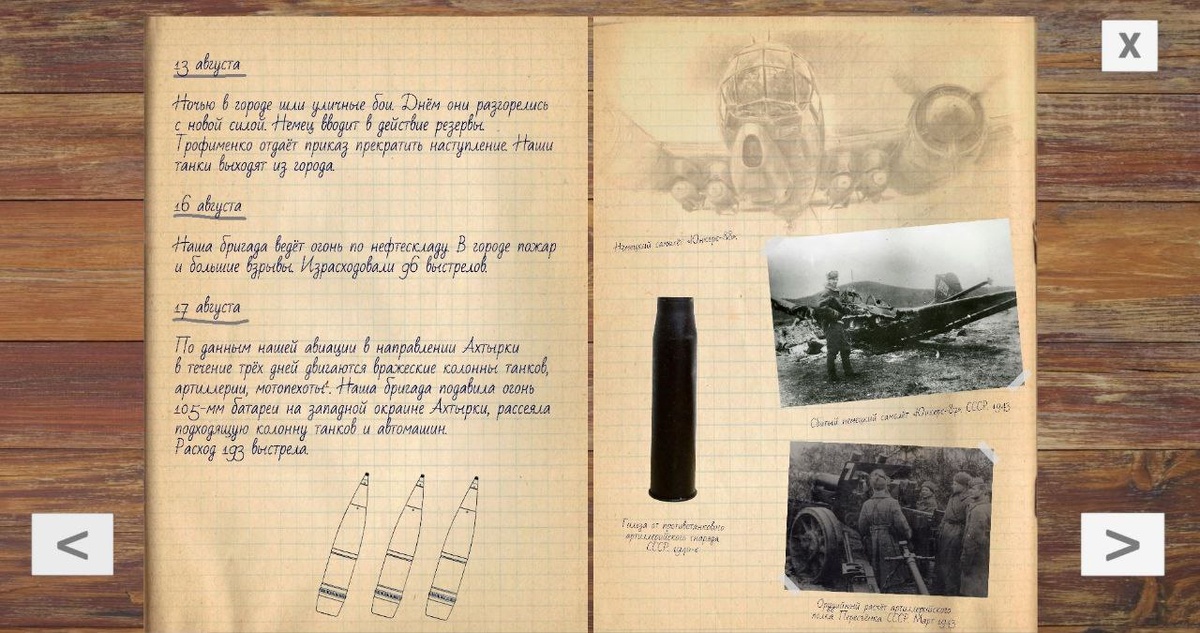 13 августа
Ночью в городе шли уличные бои. Днём они разгорелись
с новой силой. Немец вводит в действие резервы.
Трофименко отдаёт приказ прекратить наступление. Наши
танки выходят из города.
16 августа
Наша бригада ведёт огонь по нефтескладу. В городе пожар
и большие взрывы. Израсходовали 96 выстрелов.
17 августа
По данным нашей авиации в направлении Ахтырки
в течение трёх дней двигаются вражеские колонны танков,
артиллерии, мотопехоты. Наша бригада подавила огонь
105-мм батареи на западной окраине Ахтырки, рассеяла
подходящую колонну танков и автомашин.
Расход 193 выстрела.
Немецкий самолёт «Юнкерс-88».
Сбитый немецкий самолёт «Юнкерс-87». СССР. 1943
Гильза от противотанкового
артиллерийского снаряда
СССР.
Орудийный расчёт артиллерийского
полка СССР. Март 1943
X
<
>